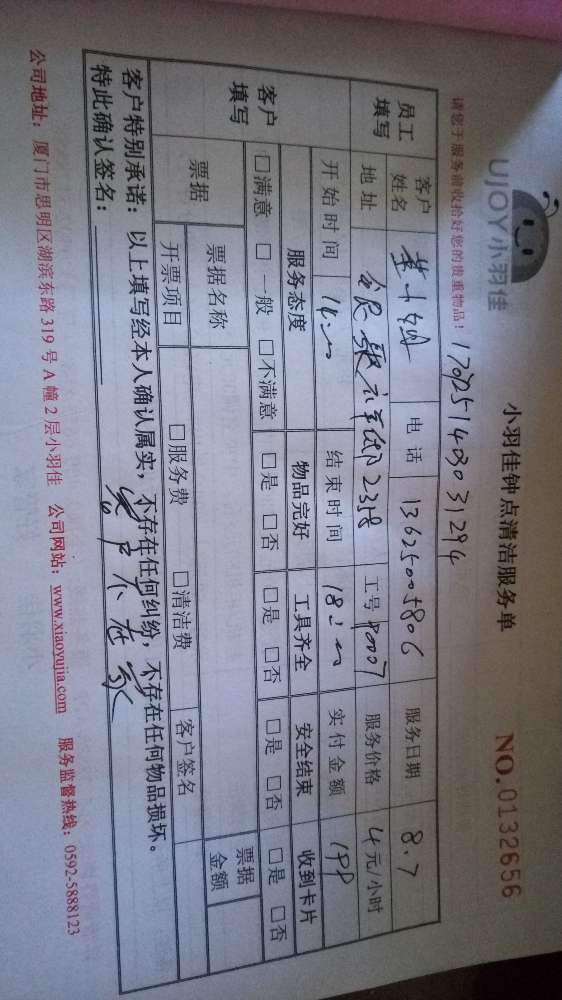 UJOY小羽佳
小羽佳钟点清洁服务单
NO.0132656
请您于服务前收拾好您的贵重物品！
17025140303 1294
员工填写 客户姓名 电话 13625005806 服务日期 8.7
地址 2318 工号 90007 服务价格 4元/小时
开始时间 14:00 结束时间 18:00 实付金额 199
客户填写 服务态度 物品完好 工具齐全 安全结束 收到卡片
□满意 □一般 □不满意 □是 □否 □是 □否 □是 □否 □是 □否
票据 票据名称 票据金额
开票项目 □服务费 □清洁费 客户签名
客户特别承诺：以上填写经本人确认属实，不存在任何纠纷，不存在任何物品损坏。
特此确认签名： 客户不在家
公司地址：厦门市思明区湖滨东路 319 号 A 幢 2 层小羽佳 公司网站：www.xiaoyujia.com 服务监督热线：0592-5888123